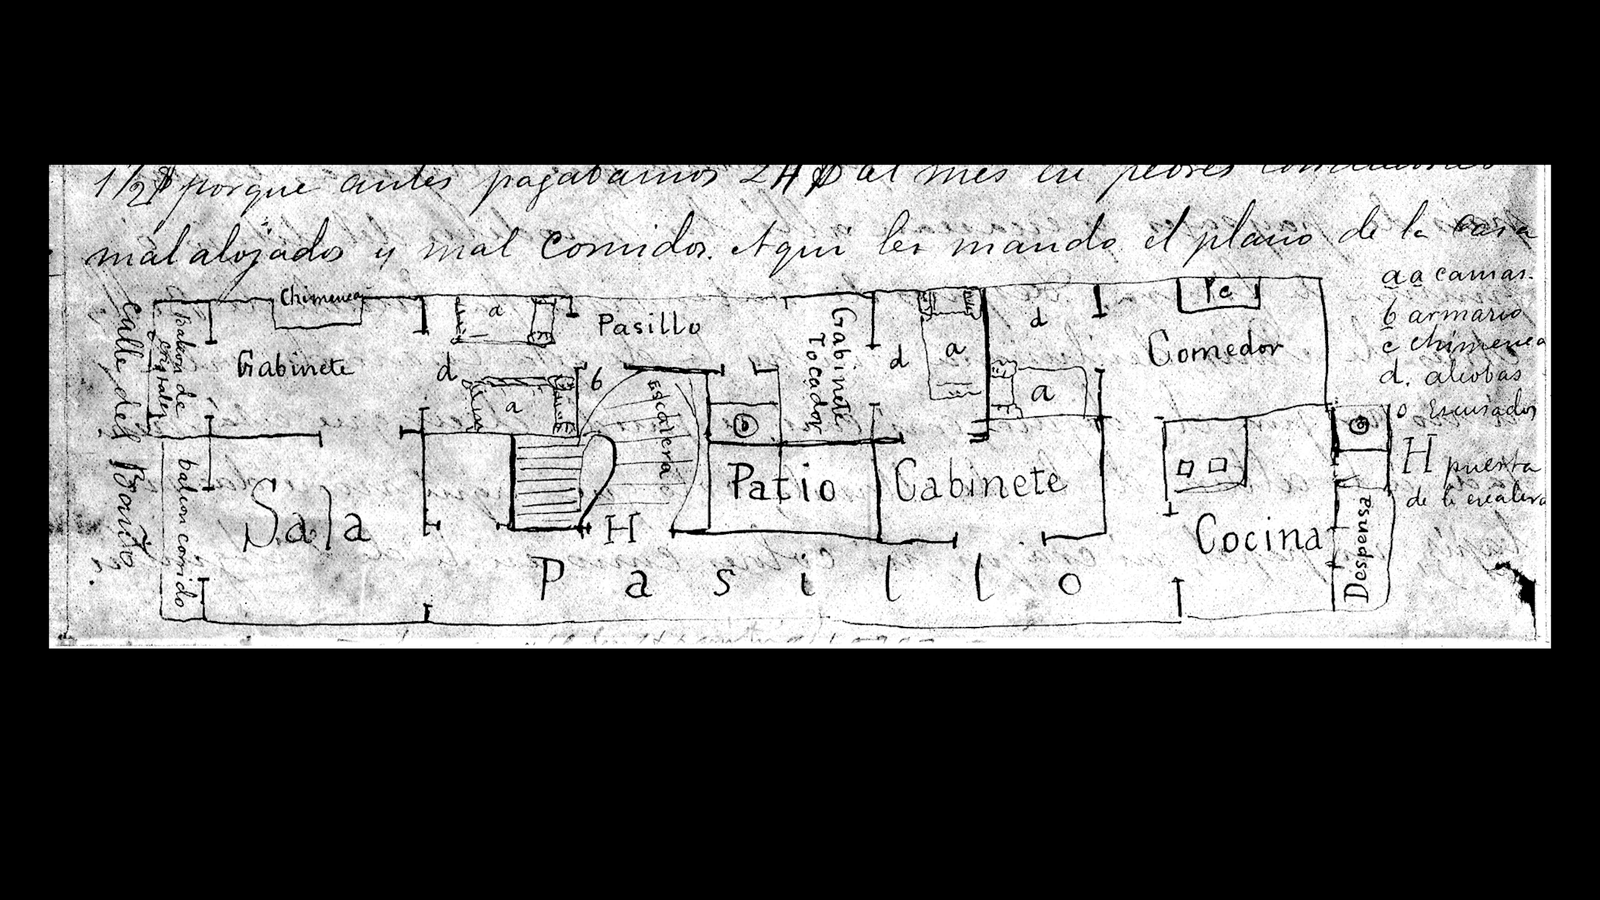 1/2$ porque antes pagabamos 24 $ al mes en peores condiciones
mal alojados y mal comidos. Aqui les mando el plano de la casa
Calle del Barrio
balcon de cristales
Chimenea
Gabinete
a
d
a
Pasillo
b
Escalera
Gabinete Tocador
d
a
d
a
c
Comedor
aa camas.
b armario
c chimenea
d. alcobas
o Escusados
H puerta
de la escalera
balcon corrido
Sala
H
Patio
Gabinete
Cocina
Despensa
Pasillo